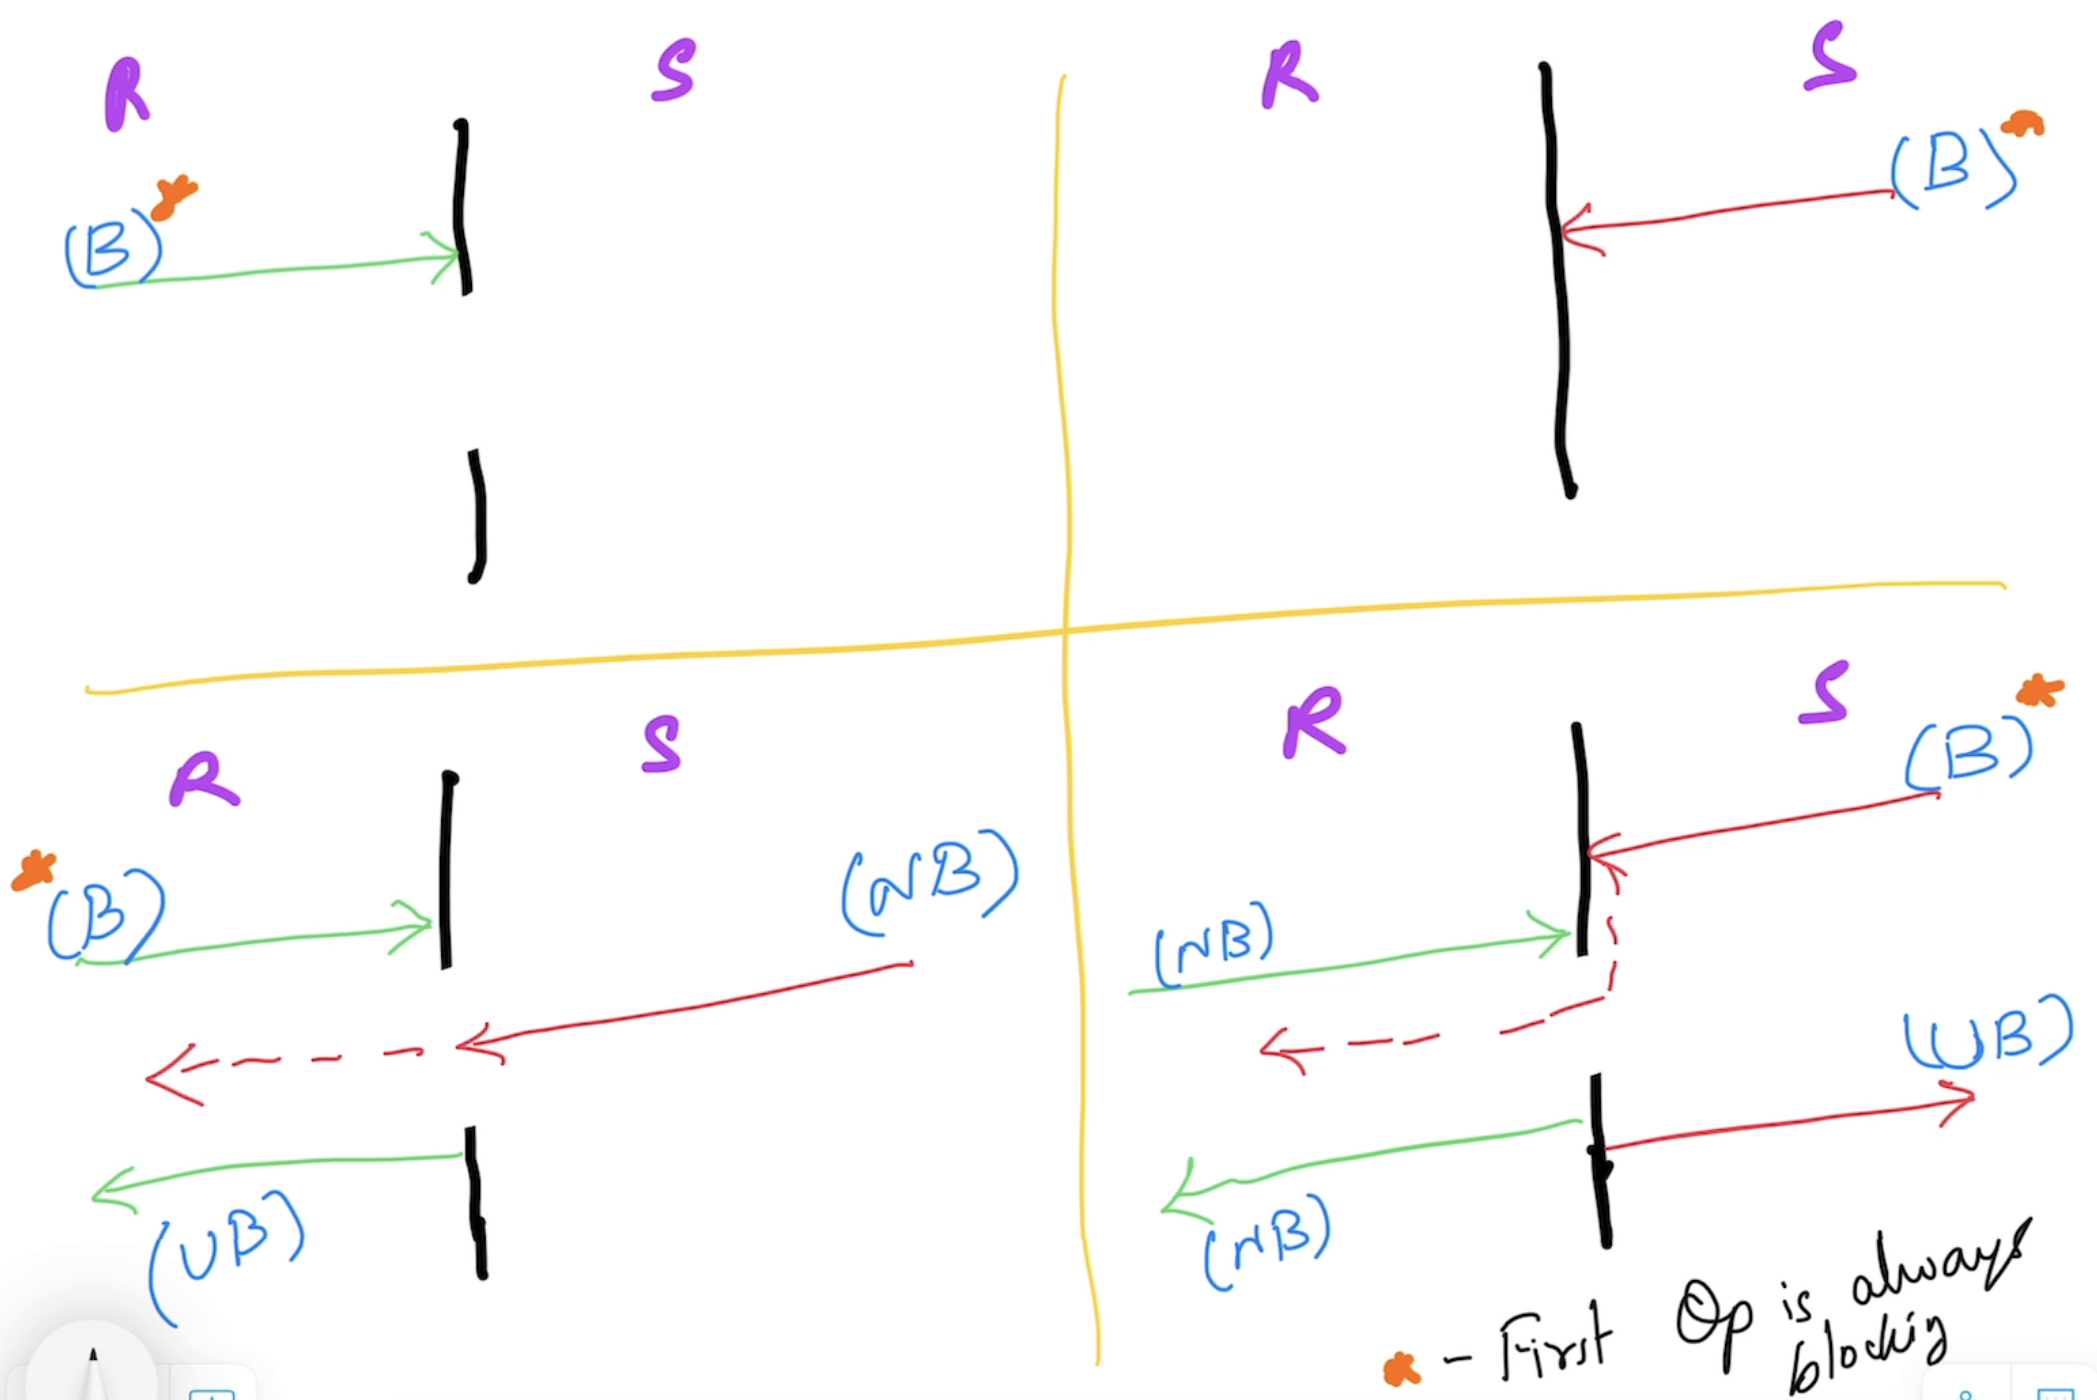 R S
(B)
R S
(B)
R S
(B) (NB)
(UB)
R S
(B)
(NB)
(UB)
(NB)
- First Op is always
blocking